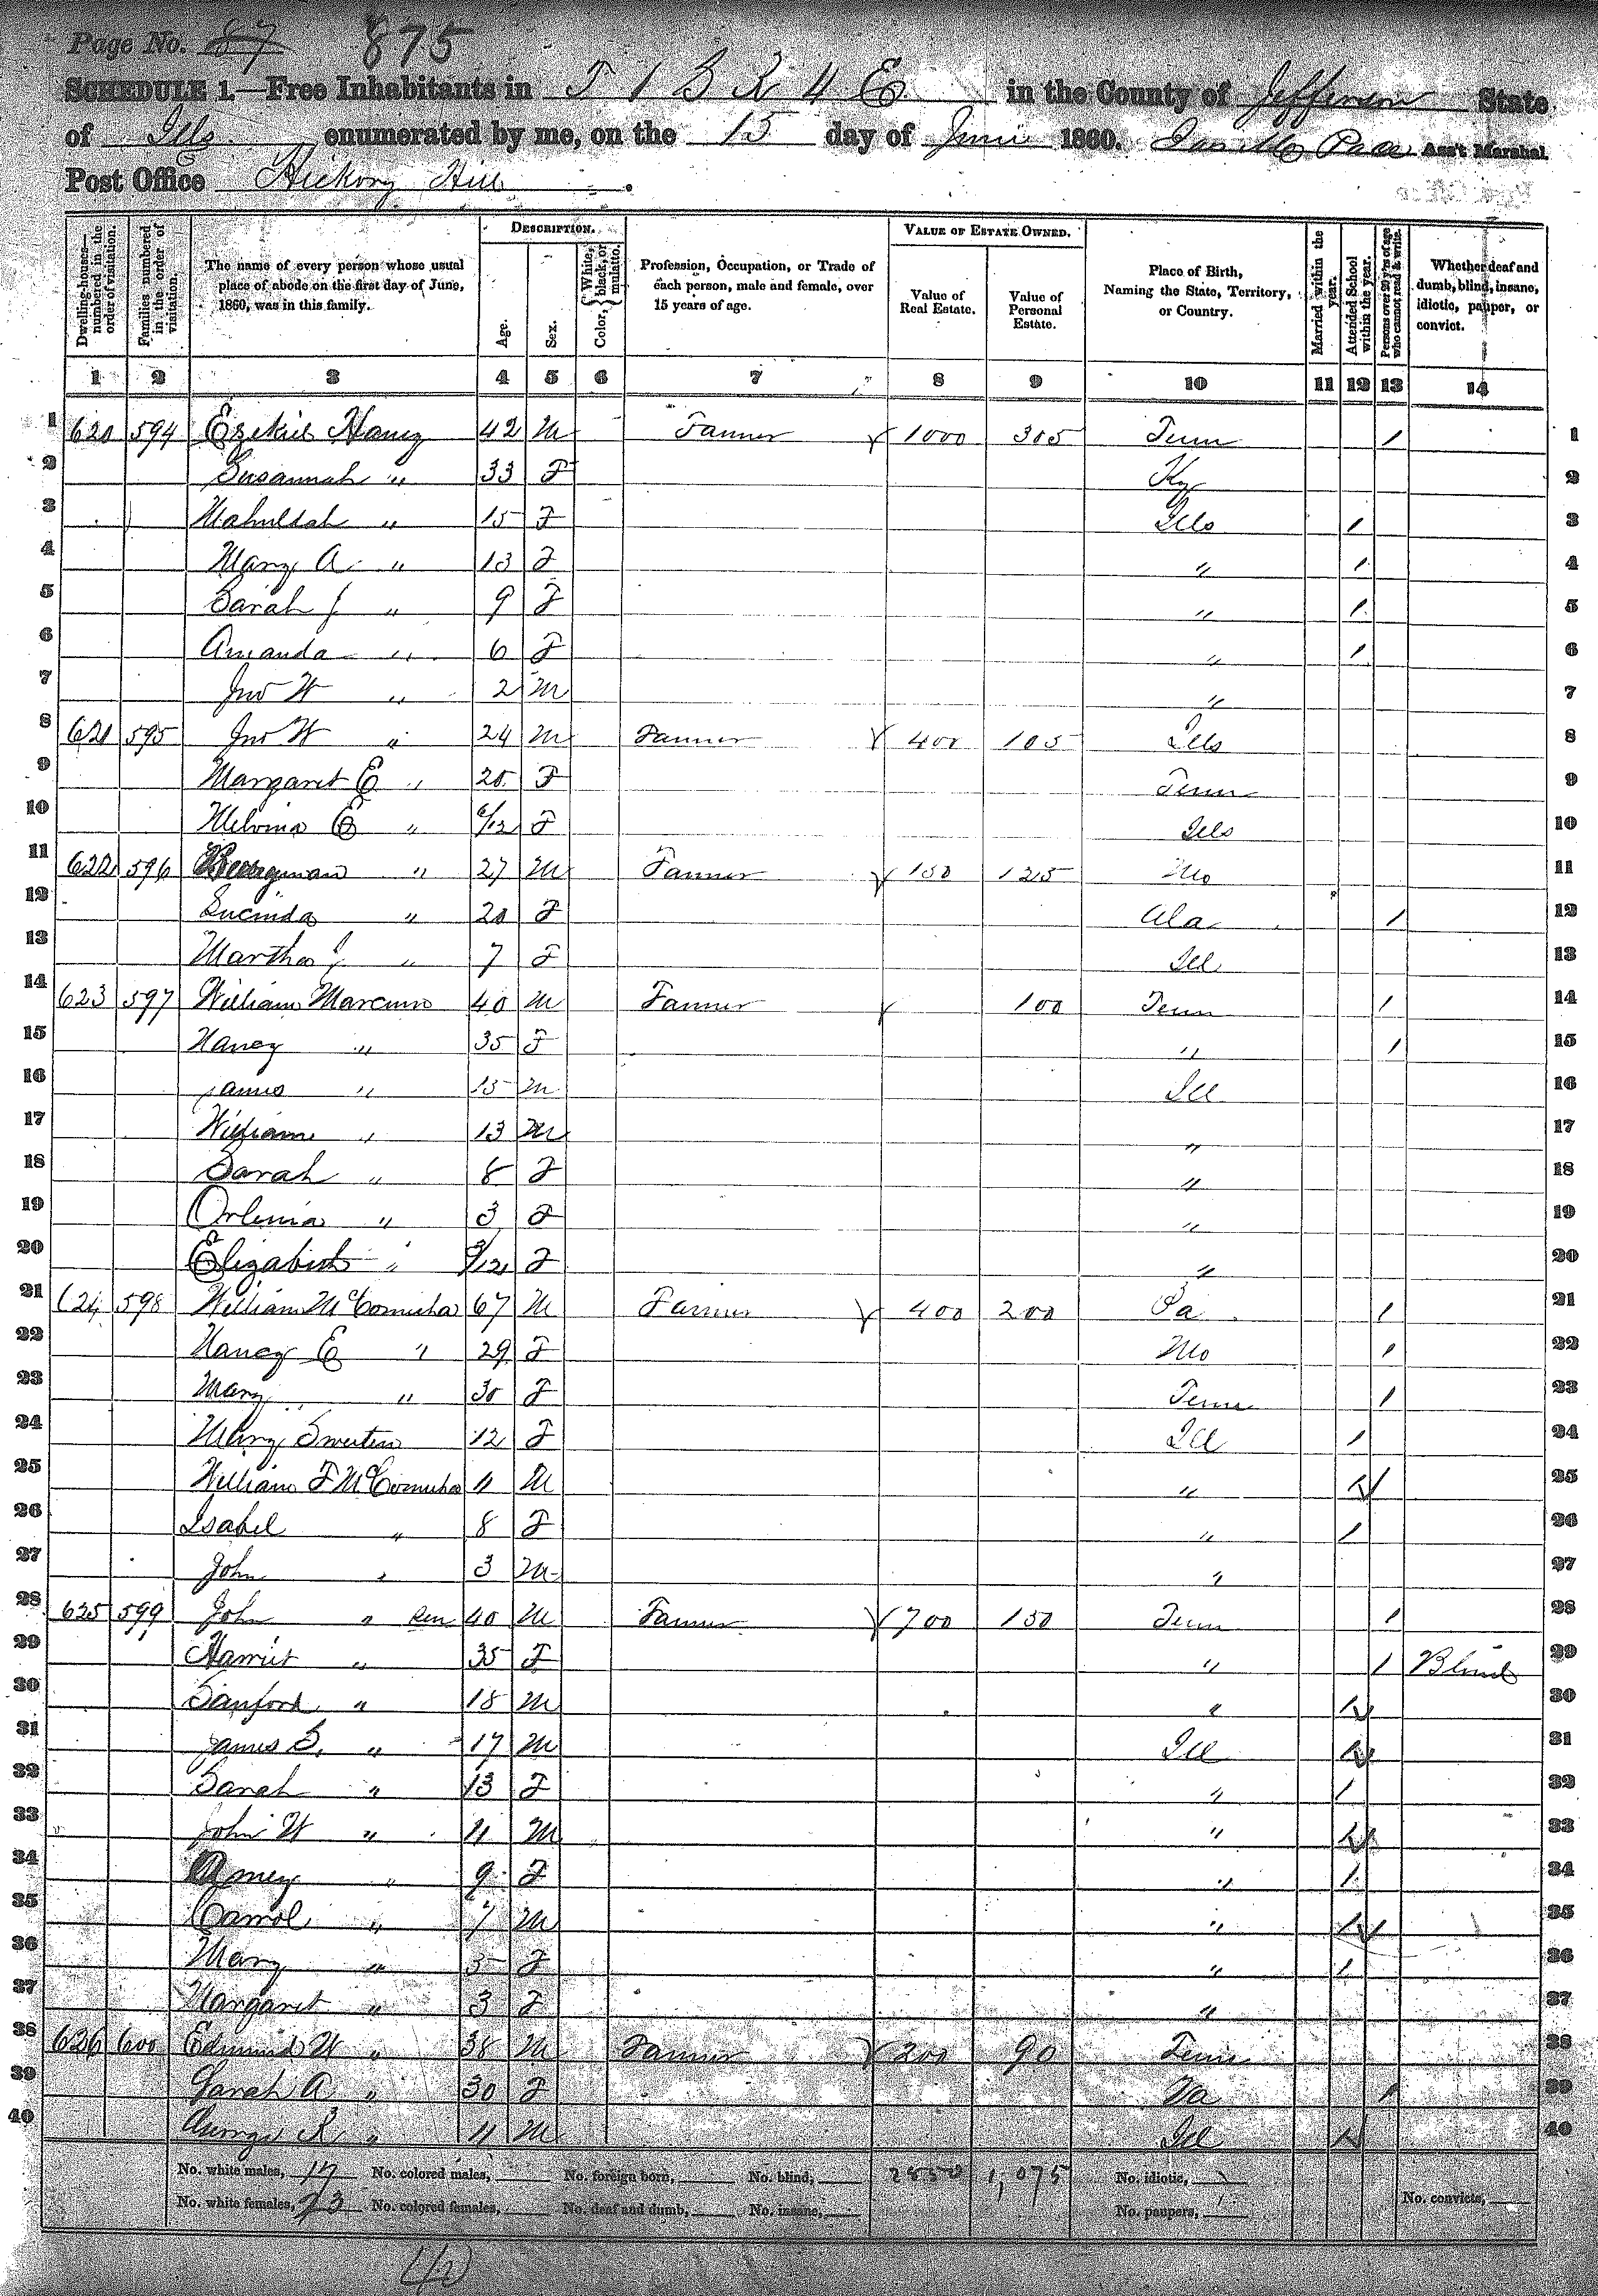 Page No. 87 875
SCHEDULE 1.—Free Inhabitants in T 1 S R 4 E in the County of Jefferson State
of Ills enumerated by me, on the 15 day of June 1860. Pace Ass't Marshal
Post Office Hickory Hill
Dwelling-houses—numbered in the order of visitation.
Families numbered in the order of visitation.
The name of every person whose usual place of abode on the first day of June, 1860, was in this family.
DESCRIPTION.
Age.
Sex.
Color, { White, black, or mulatto.
Profession, Occupation, or Trade of each person, male and female, over 15 years of age.
VALUE OF ESTATE OWNED.
Value of Real Estate.
Value of Personal Estate.
Place of Birth, Naming the State, Territory, or Country.
Married within the year.
Attended School within the year.
Persons over 20 y'rs of age who cannot read & write.
Whether deaf and dumb, blind, insane, idiotic, pauper, or convict.
1 2 3 4 5 6 7 8 9 10 11 12 13 14
1 620 594 Ezekiel 42 M Farmer 1000 305 Tenn / 1
2 Susannah " 33 F Ky 2
3 " 15 F Ills / 3
4 Mary A " 13 F " / 4
5 Sarah J " 9 F " / 5
6 Amanda " 6 F " / 6
7 Jno W " 2 M " 7
8 621 595 Jno W " 24 M Farmer 400 105 Ills 8
9 Margaret E " 20 F Tenn 9
10 Melvina E " 6/12 F Ills 10
11 622 596 " 27 M Farmer 150 125 Mo 11
12 Lucinda " 20 F Ala / 12
13 Martha J " 7 F Ill 13
14 623 597 William Marcum 40 M Farmer 100 Tenn / 14
15 Nancy " 35 F " / 15
16 James " 15 M Ill 16
17 William " 13 M " 17
18 Sarah " 8 F " 18
19 Orlenia " 3 F " 19
20 Elizabeth " /12 F " 20
21 624 598 William 67 M Farmer 400 200 Pa / 21
22 Nancy E " 29 F Mo / 22
23 Mary " 30 F Tenn / 23
24 Mary 12 F Ill / 24
25 William F 11 M " / 25
26 Isabel " 8 F " / 26
27 John " 3 M " 27
28 625 599 John " 40 M Farmer 700 150 Tenn / 28
29 Harriet " 35 F " / Blind 29
30 Sanford " 18 M " / 30
31 James S. " 17 M Ill / 31
32 Sarah " 13 F " / 32
33 John W " 11 M " / 33
34 Amey " 9 F " / 34
35 Carrol " 7 M " / 35
36 Mary " 5 F " / 36
37 Margaret " 3 F " 37
38 626 600 Edmund W " 38 M Farmer 200 90 Tenn 38
39 Sarah A " 30 F Va / 39
40 George R " 11 M Ill / 40
No. white males, 17 No. colored males, No. foreign born, No. blind, 2850 1,075 No. idiotic,
No. white females, 23 No. colored females, No. deaf and dumb, No. insane, No. paupers, No. convicts,